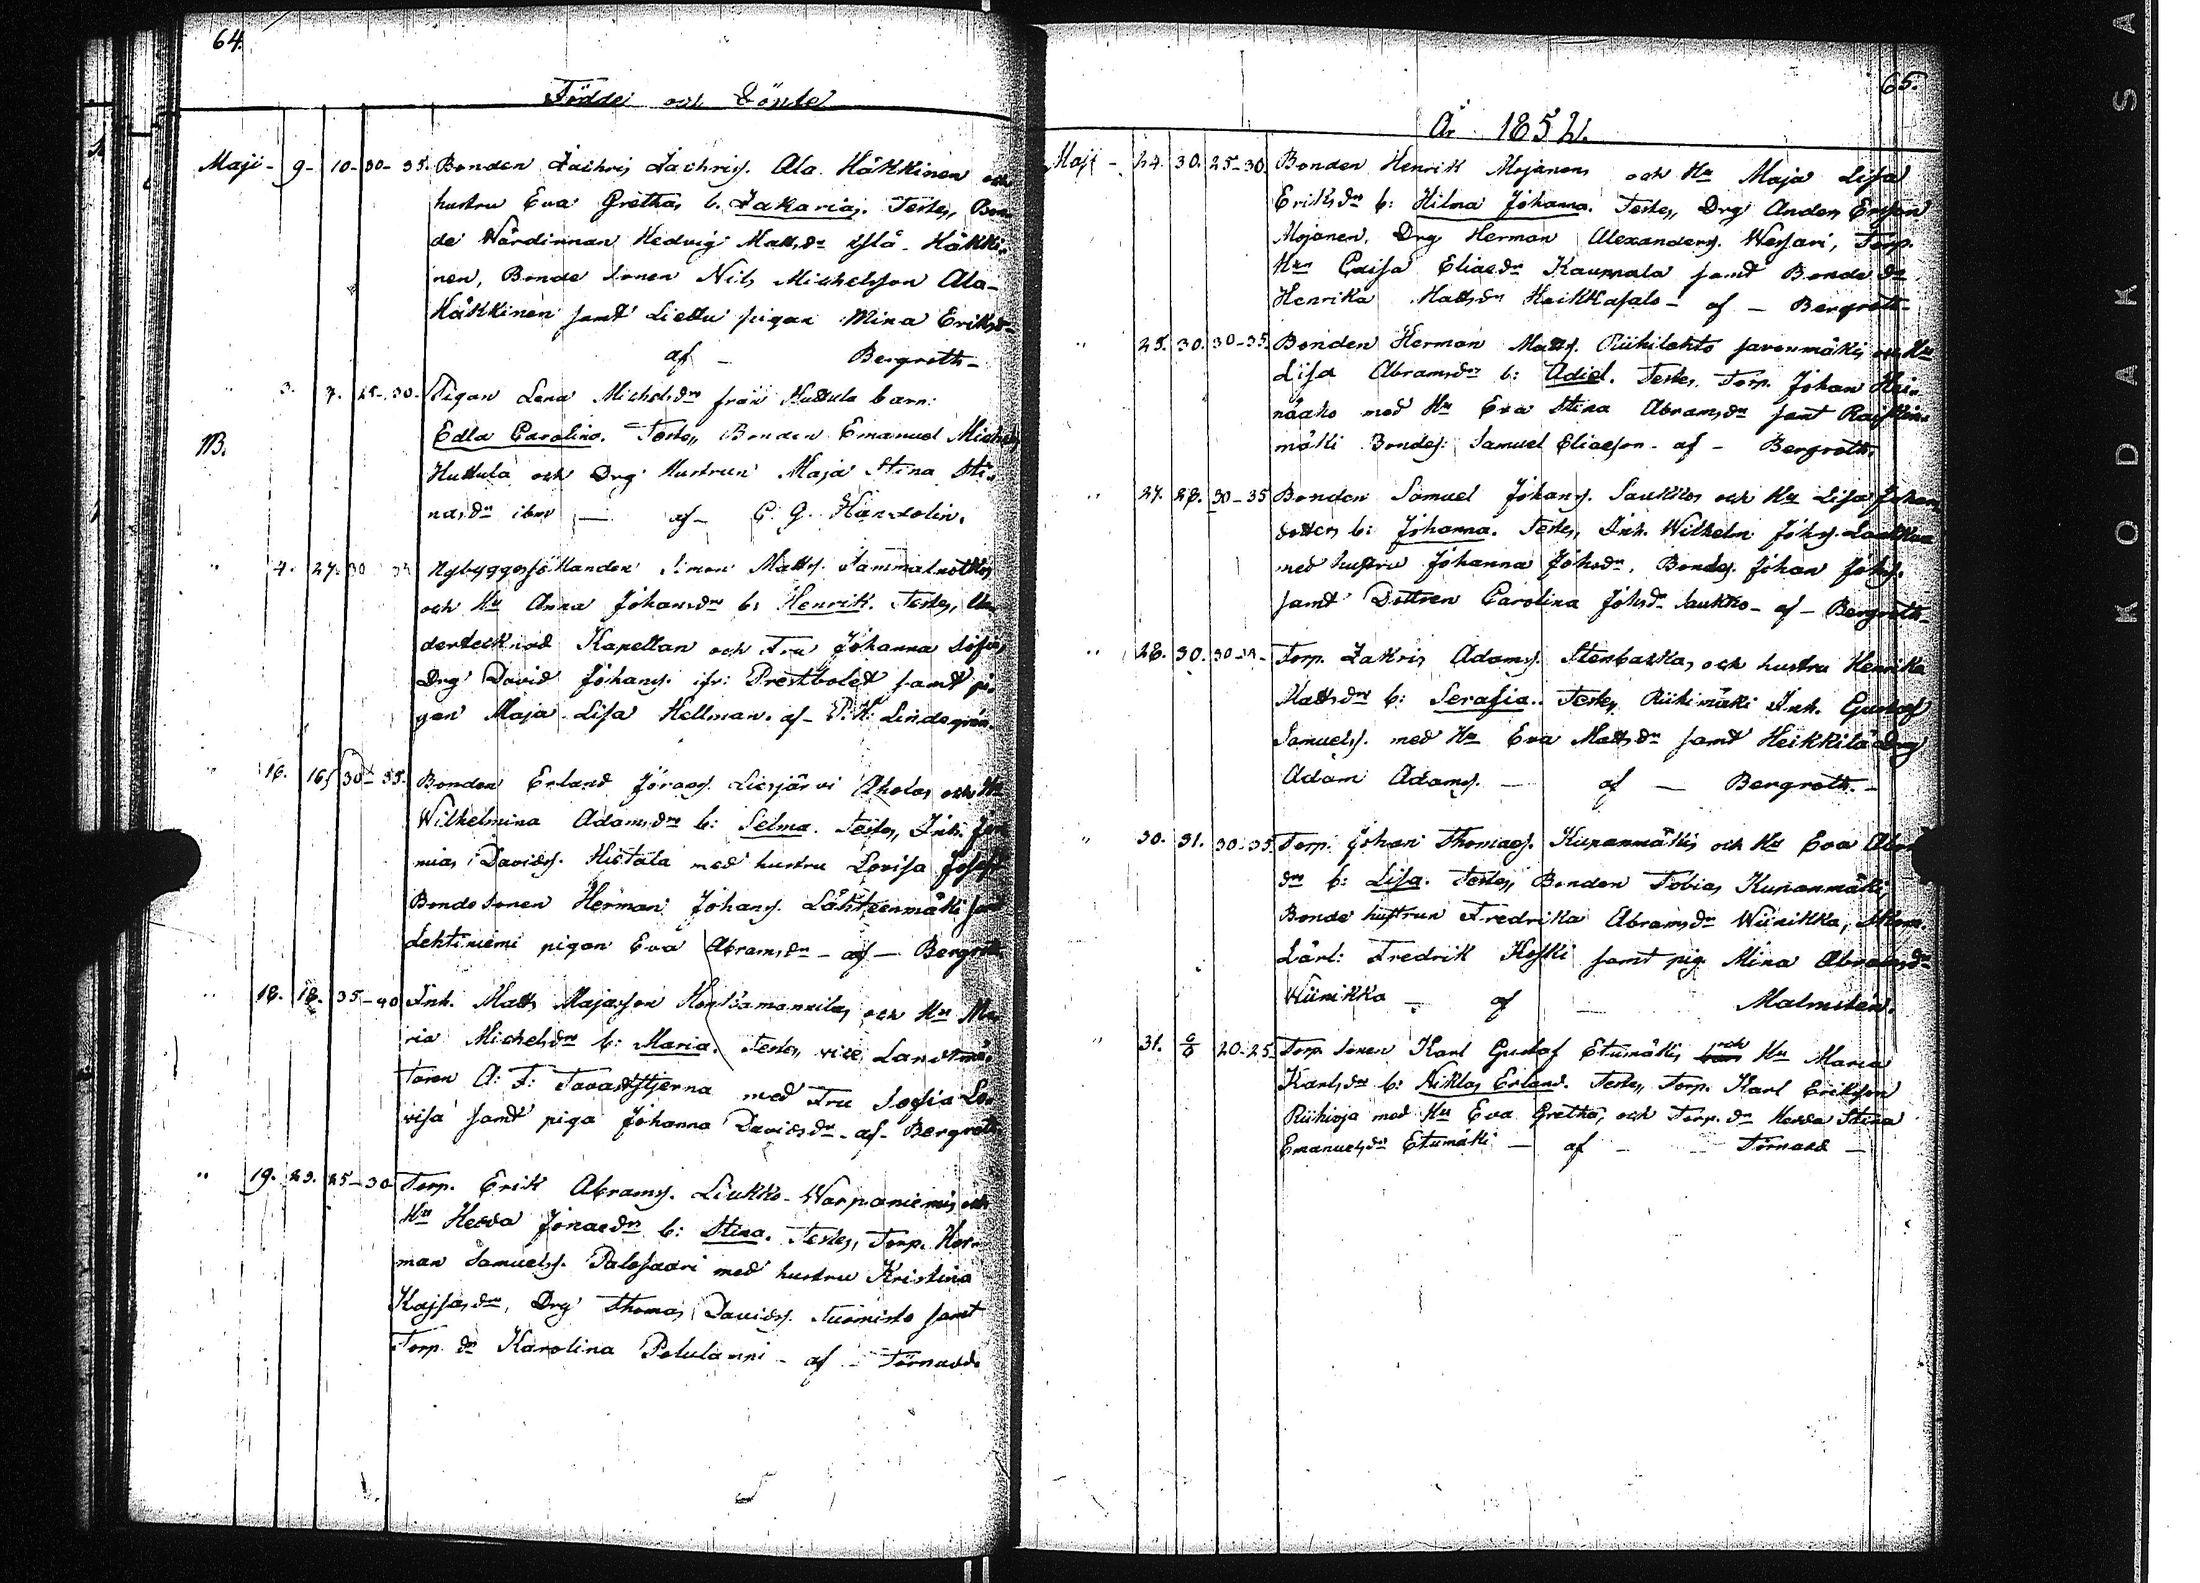 64.
Födde och Döpte
Maji - 9 - 10 - 30 - 35. Bonden Zachris Zachriss. Ala Häkkinen och
hustru Eva Grethas b. Zakarias. Testes, Bon
de Wärdinnan Hedvig Mattsdr Häkki-
nen, Bonde Sonen Nils Michelsson Ala-
Häkkinen samt Liettu pigan Mina Eriksdr
af - Bergroth -
" 3. 7. 25 - 30. Pigan Lena Michelsdrs från Huttula barn:
NB. Edla Carolina. Testes, Bonden Emanuel Michels
Huttula och Drg Hustrun Maja Stina Sti-
nasdr ibm - af - C. G. Handolin.
" 4. 27. 30 Nybyggesjöllanden Simon Matts. Sammalnotkos
och Hu Anna Johansdrs b: Henrik. Testes, Un
dertecknad Kapellan och Fru Johanna Sofia,
Drg David Johans. ifr: Prestbolet samt pi-
gan Maja Lisa Hellman. af - Lindegrén
" 16. 16. 30 - 35. Bonden Erland Jöransy. Liesjärvi Aholas och Hu
Wilhelmina Adamsdrs b: Selma. Testes, Inh. Jere
mias Davidss. Hietala med hustru Lovisa Josefs
Bondesonen Herman Johanss. Lähteenmäki samt
Lehtiniemi pigan Eva Abramsdr - af - Bergroth
" 18. 18. 35 - 40 Inh. Matts Majasson och Hu Ma
ria Michelsdrs b: Maria. Testes, vice Landtmä-
taren A: F: Tavaststjerna med Fru Sofia Lo-
visa samt piga Johanna Davidsdr - af - Bergroth
" 19. 23. 25 - 30 Torp. Erik Abramss. Liukko-Warpaniemis och
Hu Hedda Jonaedrs b: Stina. Testes, Torp. Her-
man Samuelss. Palosaari med hustru Kristina
Kajsasdr, Drg Thomas Davidss. Tuomisto samt
Torp. dr Karolina Polulanni - af - Törnudd.
65.
År 1852.
Maji - 24. 30. 25 - 30. Bonden Henrik Mojanens och Hu Maja Lisa
Eriksdrs b: Hilma Johanna. Testes, Drg Anders Ersson
Mojanen, Drg Herman Alexanderss. Wesari, Torp.
Hun Caisa Eliaedr Kauppala samt Bonde dr
Henrika Mattsdr Heikkasalo - af - Bergroth -
" 25. 30. 30 - 35. Bonden Herman Matts. Riihilahto Savonmäkis och Hu
Lisa Abramsdrs b: Adiel. Testes, Torp. Johan Hei-
näaho med Hu Eva Stina Abramsdr samt
mäki Bondes: Samuel Eliaeson - af - Bergroth.
" 27. 28. 30 - 35 Bonden Samuel Johans. Saukkos och Hu Lisa Johans
dotters b: Johanna. Testes, Inh. Wilhelm Johss.
med hustru Johanna Johsdr, Bondes. Johan Johss.
samt Dottren Carolina Johsdr Saukko - af - Bergroth -
" 28. 30. 30 - Torp. Zakris Adamss. Stenbackas och hustru Henrika
Mattsdrs b: Serafia. Testes, Riihimäki Inh. Gustaf
Samuelss. med Hu Eva Mattsdr samt Heikkilä Drg
Adam Adamss. - af - Bergroth. -
" 30. 31. 30 - 35. Torp. Johan Thomass. Kupanmäkis och Hu Eva
drs b: Lisa. Testes, Bonden Tobias Kupanmäki,
Bonde hustrun Fredrika Abramsdr Wiinikka, Skom.
Lärl: Fredrik Koski samt pig Mina Abramsdr
Wiinikka - af - Malmstén.
" 31. 6/6 20 - 25. Torp Sonen Karl Gustaf Etumäkis och Hu Maria
Karlsdrs b: Niklas Erland. Testes, Torp. Karl Eriksson
Riihioja med Hu Eva Gretha, och Torp. dr Hedda Stina
Emanuelsdr Etumäki - af - Törnudd -
KODAK SA